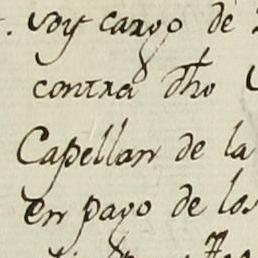 . voy cargo de
contra dho
Capellan de la
en pago de los